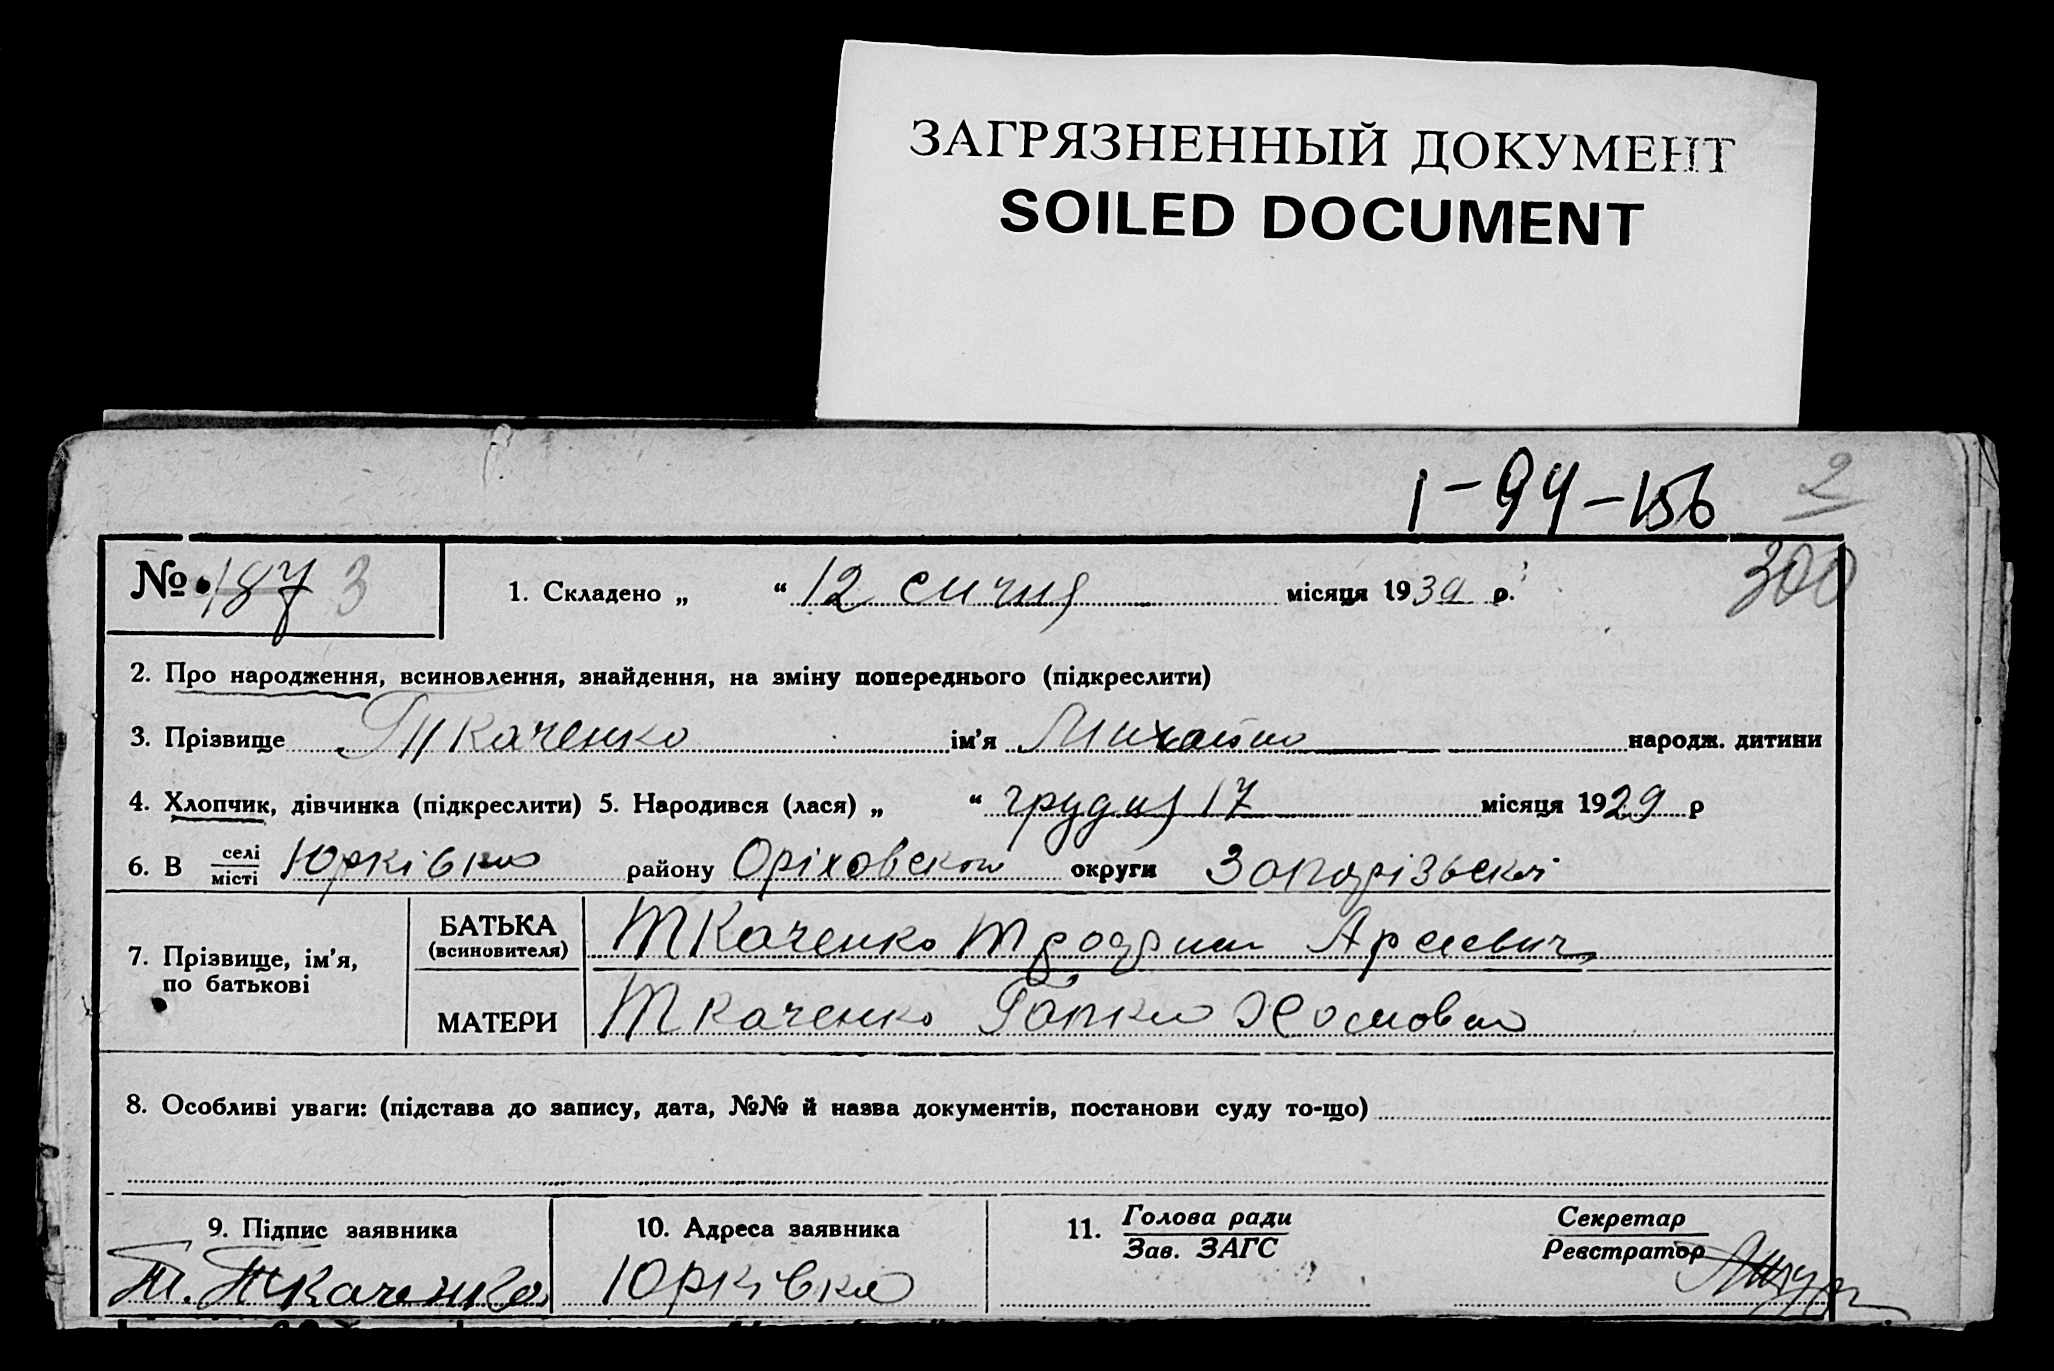 ЗАГРЯЗНЕННЫЙ ДОКУМЕНТ
SOILED DOCUMENT
1-94-156 2
№ 187 3 1. Складено „ “ 12 січня місяця 1930 р. 300
2. Про народження, всиновлення, знайдення, на зміну попереднього (підкреслити)
3. Прізвище Ткаченко ім’я Михайло народж. дитини
4. Хлопчик, дівчинка (підкреслити) 5. Народився (лася) „ “ грудня 17 місяця 1929 р
6. В селі місті Юрківка району Оріховского округи Запорізьской
7. Прізвище, ім’я, по батькові
БАТЬКА (всиновителя) Ткаченко
МАТЕРИ Ткаченко Гапка
8. Особливі уваги: (підстава до запису, дата, №№ й назва документів, постанови суду то-що)
9. Підпис заявника 10. Адреса заявника 11. Голова ради Секретар
Зав. ЗАГС Реєстратор
Т. Ткаченко Юрківка